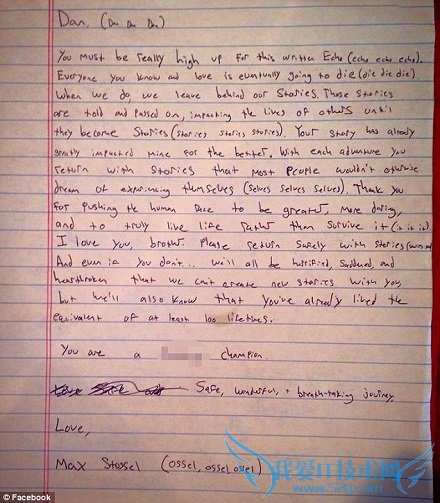 Dan, (Dan Dan Dan)
You must be really high up for this written Echo (echo echo echo).
Everyone you know and love is eventually going to die (die die die).
When we do, we leave behind our Stories. Those stories
are told and passed on, impacting the lives of others until
they become Stories (stories stories stories). Your story has already
greatly impacted mine for the better. With each adventure you
return with stories that most people wouldn't otherwise
dream of experiencing themselves (selves selves selves). Thank you
for pushing the human race to be greater, more daring,
and to truly live life rather than survive it (it it it).
I love you, brother. Please return safely with stories
And even if you don't... we'll all be horrified, saddened, and
heartbroken that we can't create new stories with you,
but we'll also know that you've already lived the
equivalent of at least 100 lifetimes.
You are a champion.
Safe, wonderful, + breath-taking journey
Love,
Max Stossel (ossel, ossel ossel)
我爱IT技术网
© Facebook